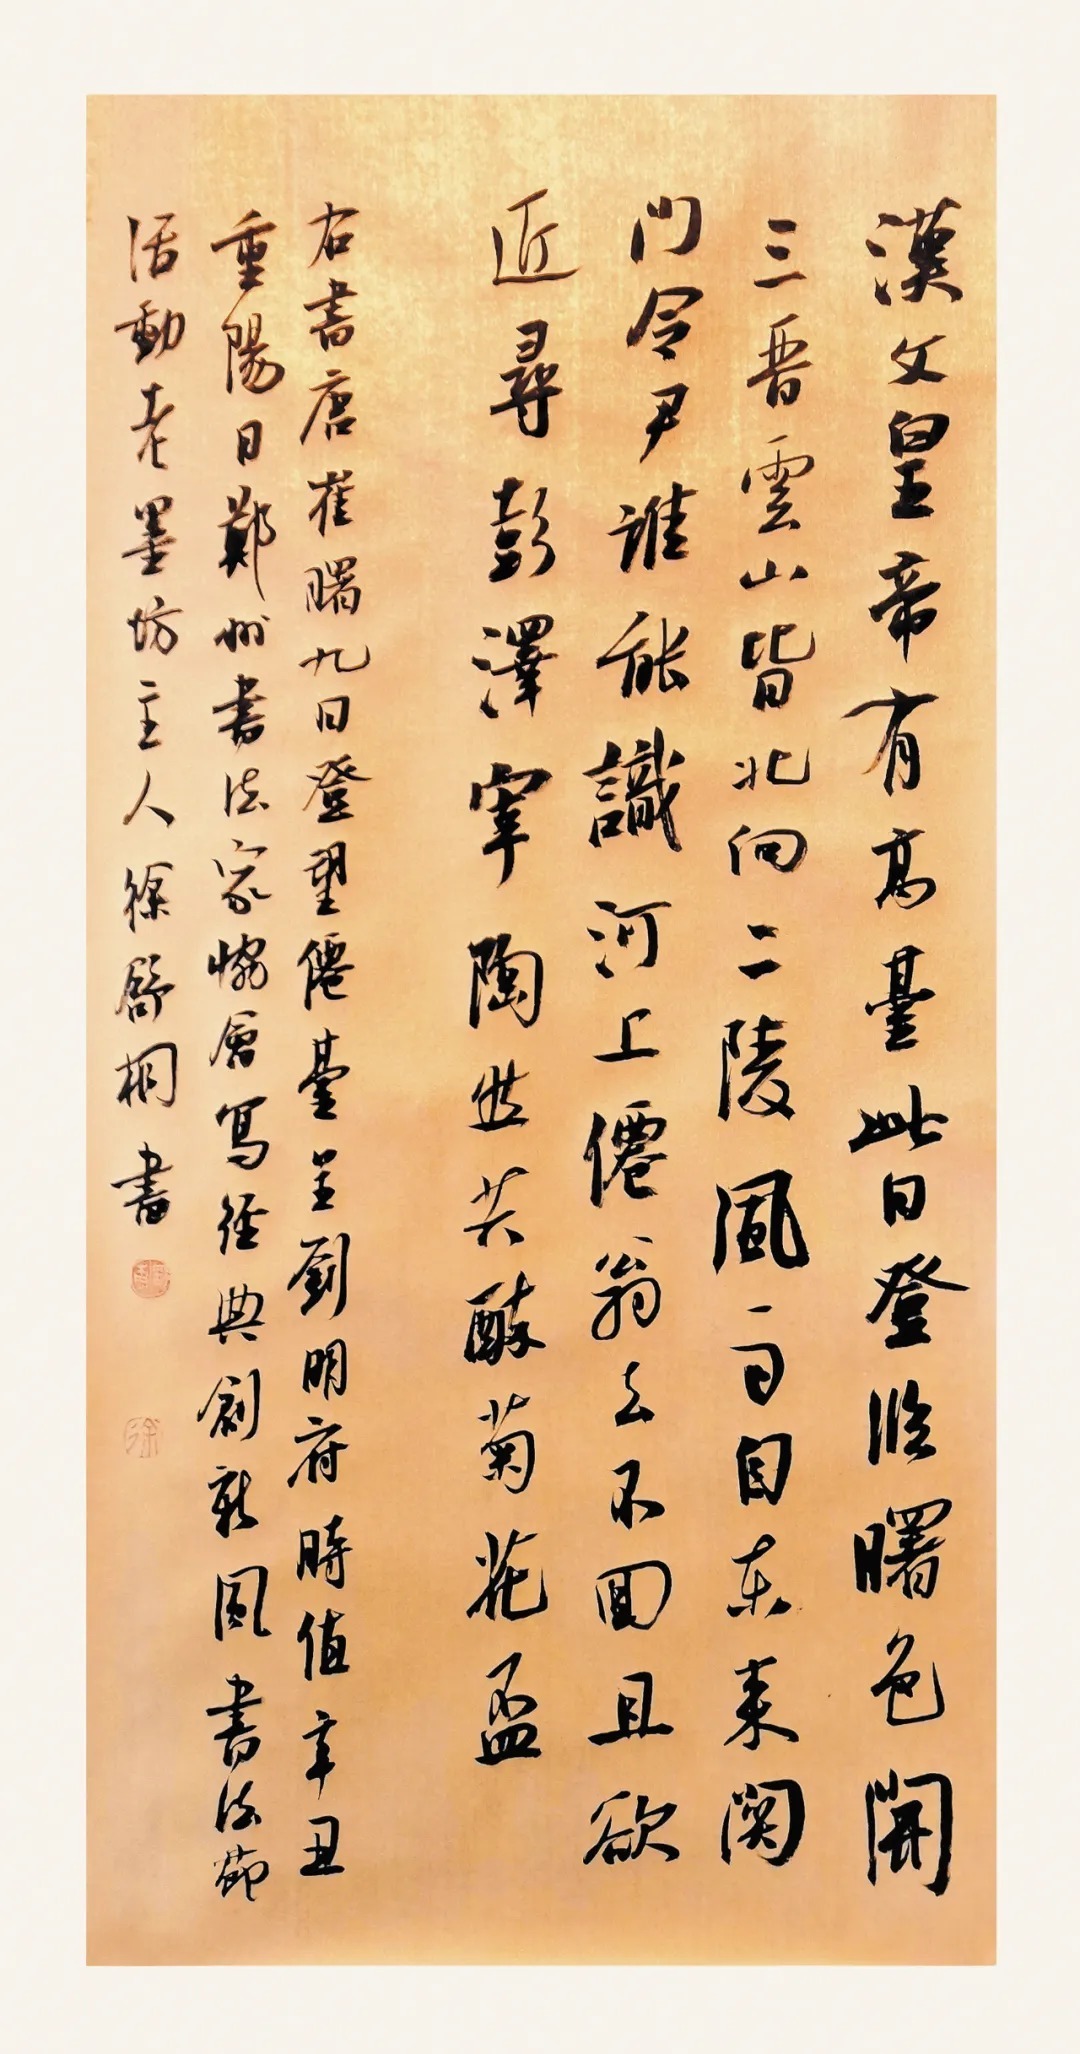 漢文皇帝有高臺此日登臨曙色開
三晋雲山皆北向二陵風雨自東来関
门令尹誰能識河上僊翁去不回且欲
近尋彭澤宰陶然共醉菊花盃
右書唐崔曙九日登望僊臺呈劉明府時值辛丑
重陽日鄭州書法家協會寫經典創新風書法節
活動老墨坊主人徐舒桐書
徐